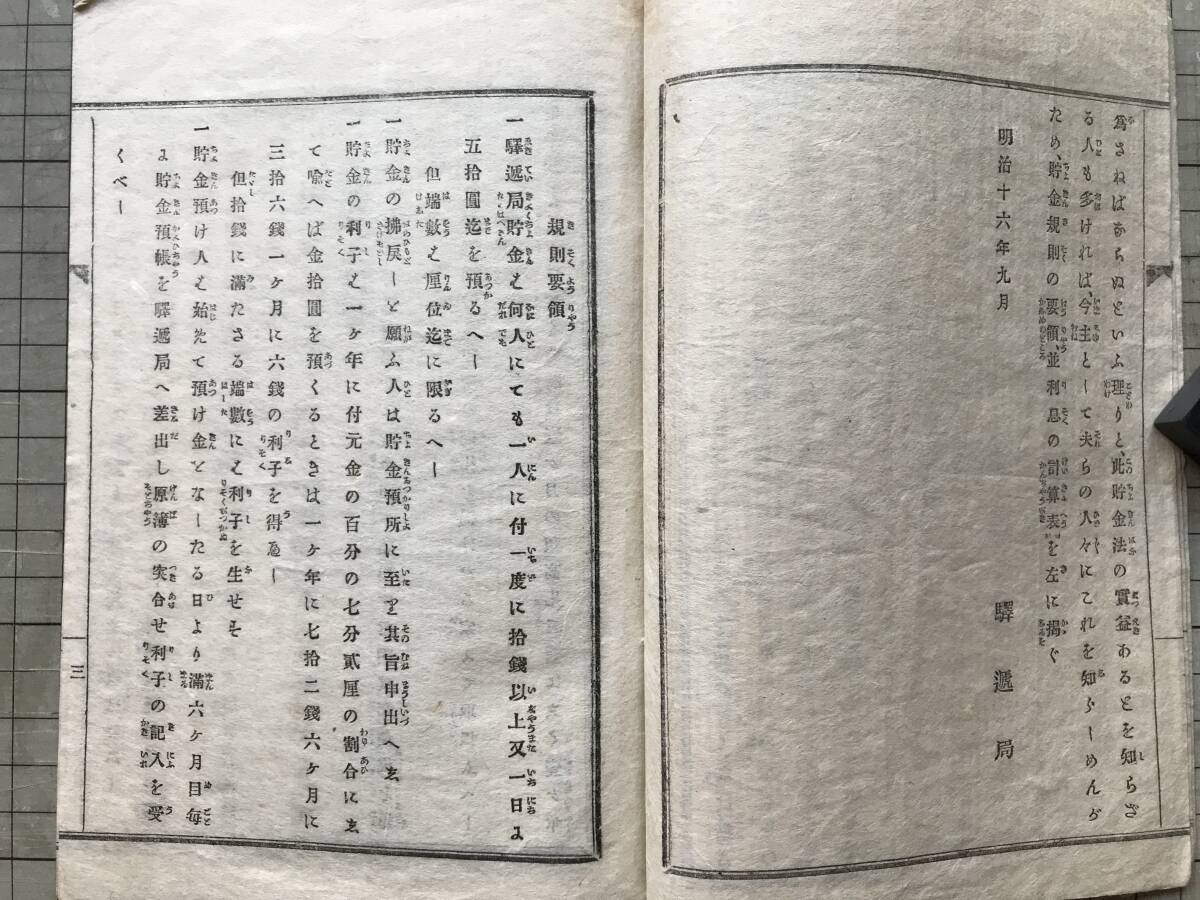 爲さねばならぬといふ理りと、此貯金法の實益あるとを知らざ
る人も多ければ、今主として夫らの人々にこれを知らしめんが
ため、貯金規則の要領、並利息の計算表を左に掲ぐ
明治十六年九月
驛遞局
規則要領
一驛遞局貯金は何人にても一人に付一度に拾錢以上又一日に
五拾圓迄を預るへし
但端數は厘位迄に限るへし
一貯金の拂戻しを願ふ人は貯金預所に至り其旨申出へし
一貯金の利子は一ヶ年に付元金の百分の七分貳厘の割合にし
て喩へば金拾圓を預くるときは一ヶ年に七拾二錢六ヶ月に
三拾六錢一ヶ月に六錢の利子を得べし
但拾錢に滿たさる端數には利子を生せす
一貯金預け人は始めて預け金をなしたる日より滿六ヶ月目毎
に貯金預帳を驛遞局へ差出し原簿の突合せ利子の記入を受
くべし
三